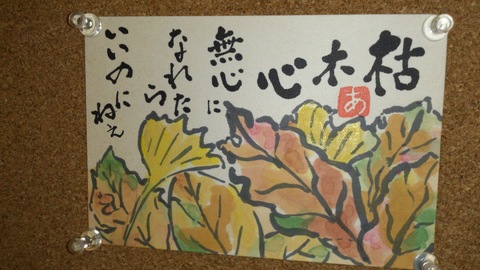 枯木心
あ
無心に
なれたら
いいのにねぇ